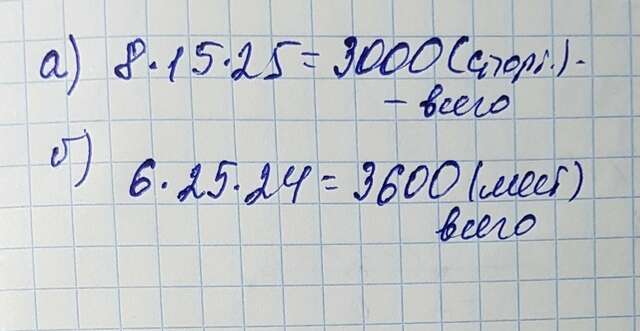 а) 8·15·25=3000(
- всего
б)
6·25·24=3600(мест)
всего